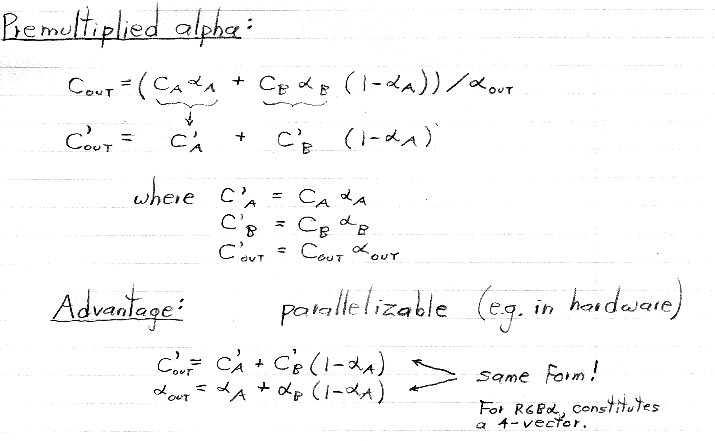 Premultiplied alpha:
C_OUT = (C_A α_A + C_B α_B (1-α_A)) / α_OUT
C'_OUT = C'_A + C'_B (1-α_A)
where C'_A = C_A α_A
C'_B = C_B α_B
C'_OUT = C_OUT α_OUT
Advantage: parallelizable (e.g. in hardware)
C'_OUT = C'_A + C'_B (1-α_A)
α_OUT = α_A + α_B (1-α_A)
same form!
For RGBα, constitutes
a 4-vector.